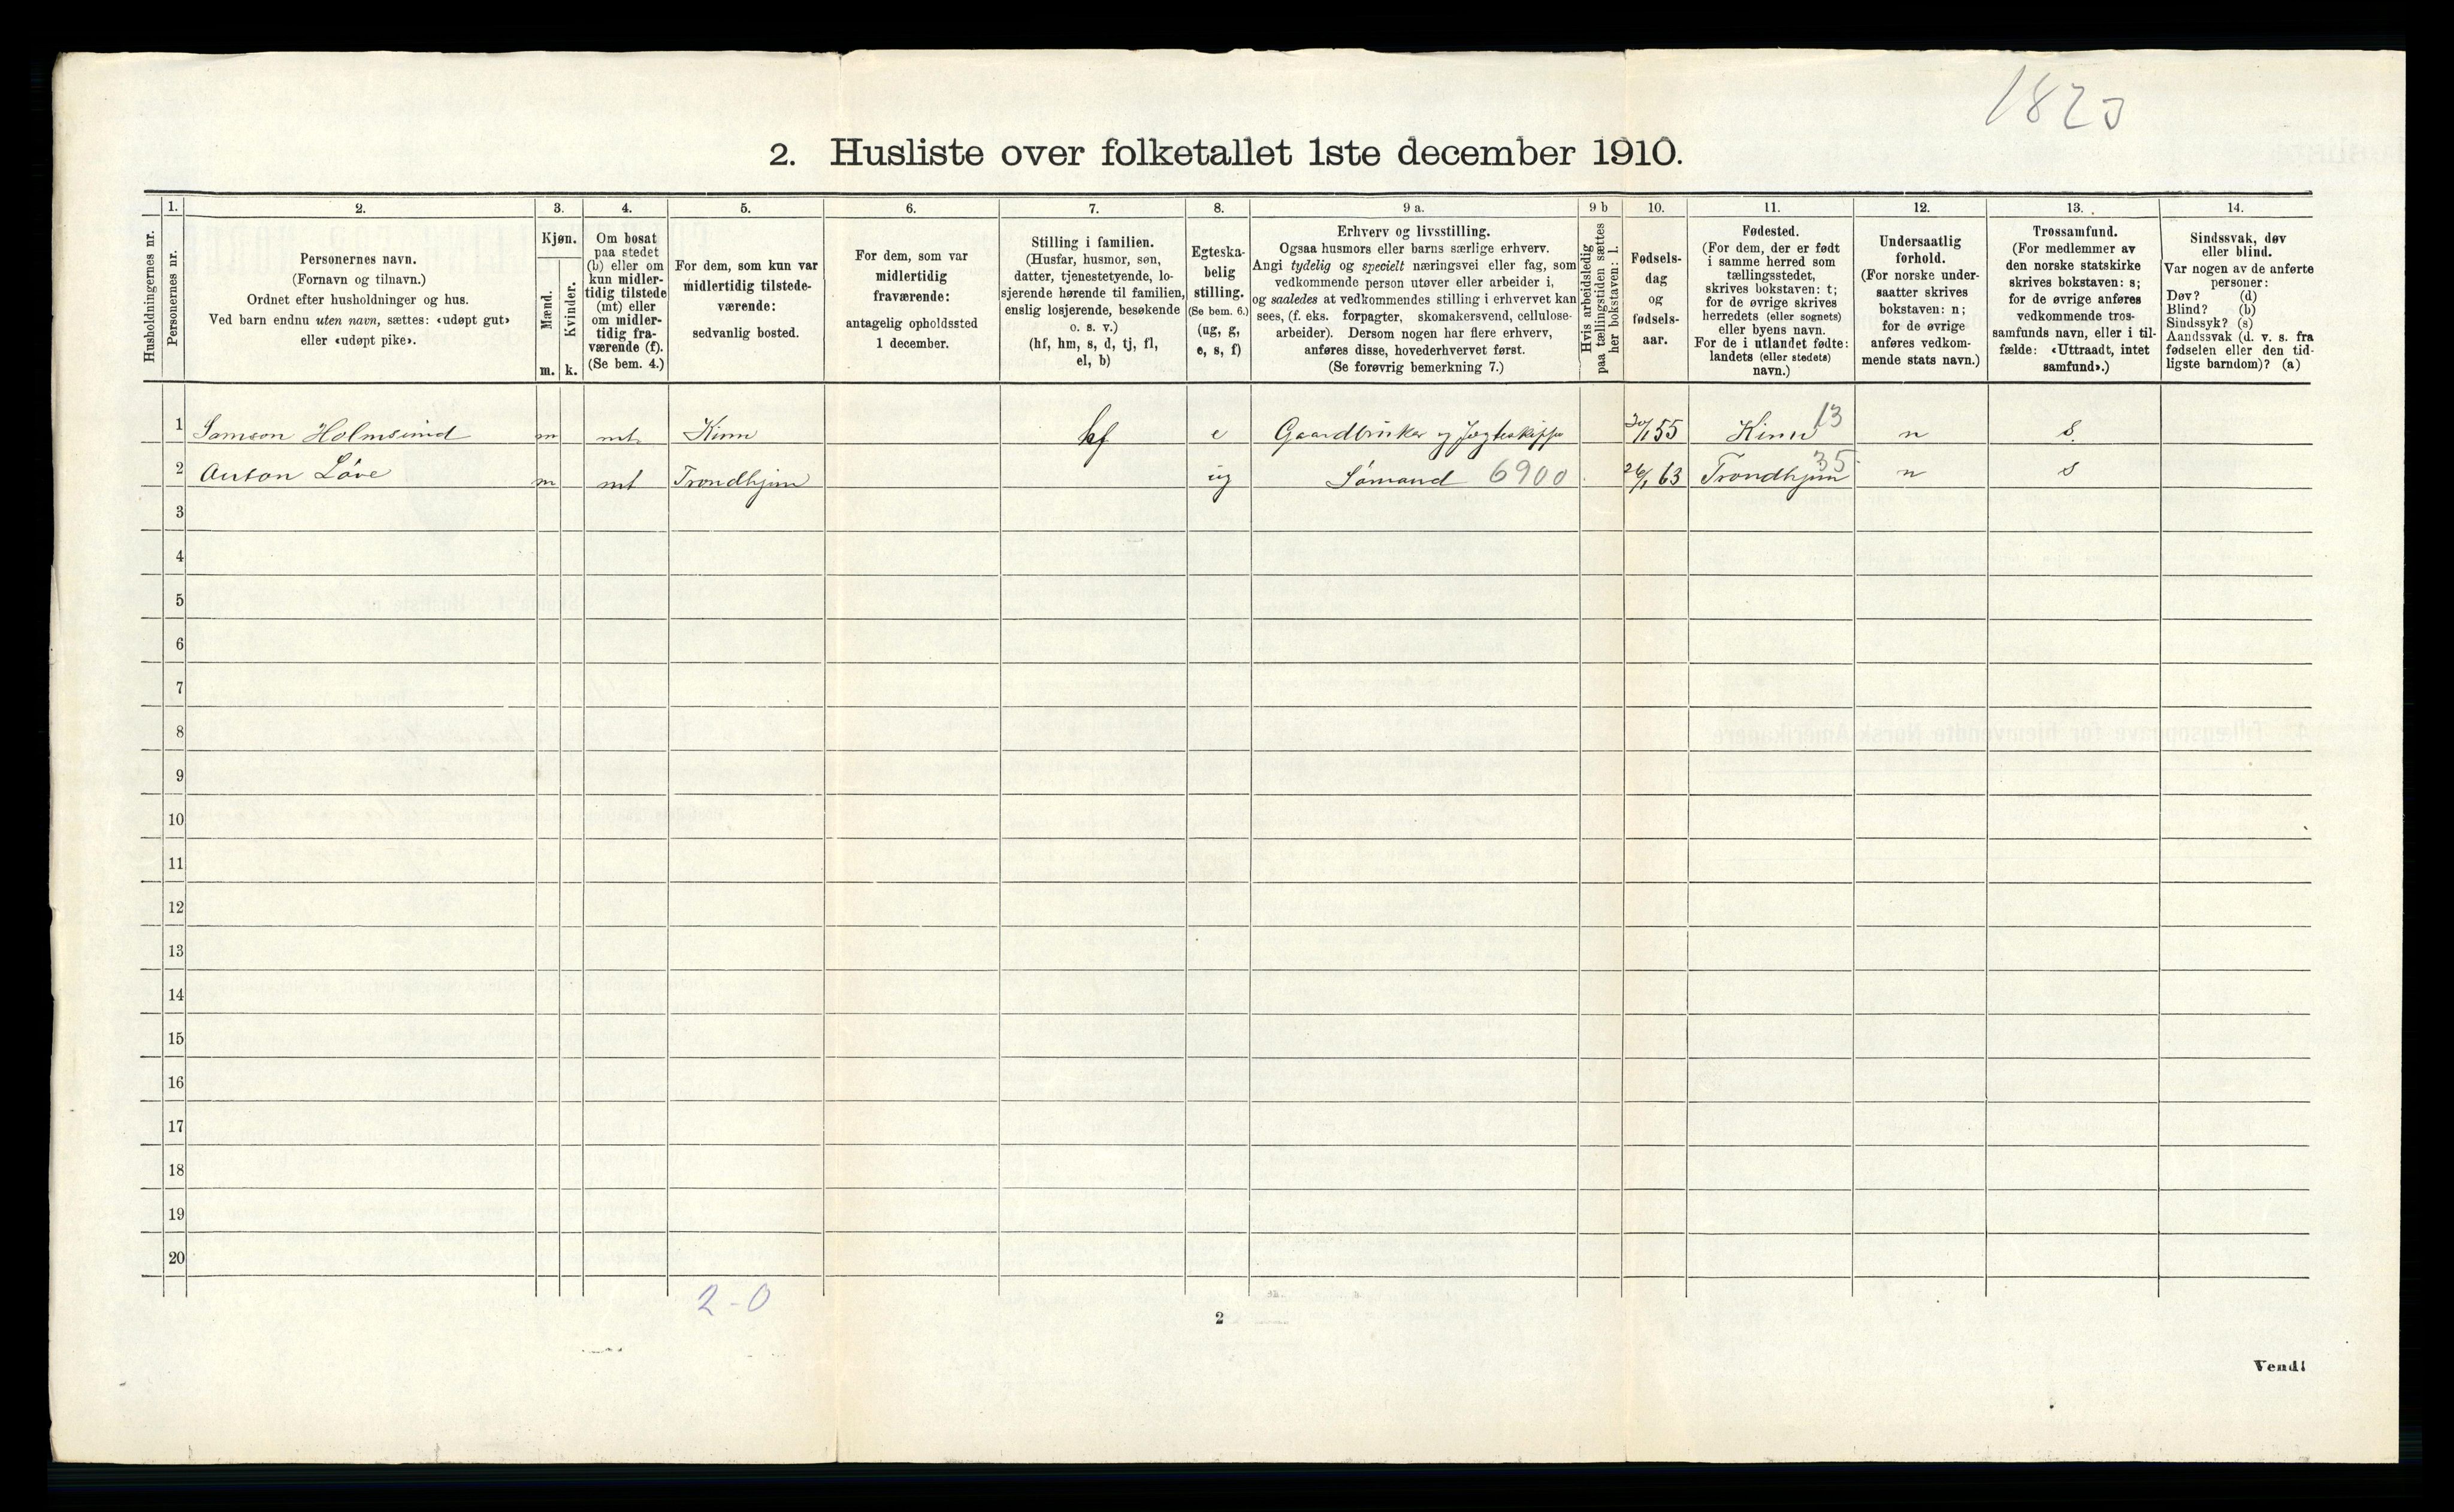 1823
2. Husliste over folketallet 1ste december 1910.
Husholdningernes nr.
1.
Personernes nr.
2.
Personernes navn.
(Fornavn og tilnavn.)
Ordnet efter husholdninger og hus.
Ved barn endnu uten navn, sættes: «udøpt gut»
eller «udøpt pike».
3.
Kjøn.
Mænd.
Kvinder.
m. k.
4.
Om bosat
paa stedet
(b) eller om
kun midler-
tidig tilstede
(mt) eller
om midler-
tidig fra-
værende (f).
(Se bem. 4.)
5.
For dem, som kun var
midlertidig tilstede-
værende:
sedvanlig bosted.
6.
For dem, som var
midlertidig
fraværende:
antagelig opholdssted
1 december.
7.
Stilling i familien.
(Husfar, husmor, søn,
datter, tjenestetyende, lo-
sjerende hørende til familien,
enslig losjerende, besøkende
o. s. v.)
(hf, hm, s, d, tj, fl,
el, b)
8.
Egteska-
belig
stilling.
(Se bem. 6.)
(ug, g,
e, s, f)
9 a.
Erhverv og livsstilling.
Ogsaa husmors eller barns særlige erhverv.
Angi tydelig og specielt næringsvei eller fag, som
vedkommende person utøver eller arbeider i,
og saaledes at vedkommendes stilling i erhvervet kan
sees, (f. eks. forpagter, skomakersvend, cellulose-
arbeider). Dersom nogen har flere erhverv,
anføres disse, hovederhvervet først.
(Se forøvrig bemerkning 7.)
9 b
Hvis arbeidsledig
paa tællingstiden sættes
her bokstaven: l.
10.
Fødsels-
dag
og
fødsels-
aar.
11.
Fødested.
(For dem, der er født
i samme herred som
tællingsstedet,
skrives bokstaven: t;
for de øvrige skrives
herredets (eller sognets)
eller byens navn.
For de i utlandet fødte:
landets (eller stedets)
navn.)
12.
Undersaatlig
forhold.
(For norske under-
saatter skrives
bokstaven: n;
for de øvrige
anføres vedkom-
mende stats navn.)
13.
Trossamfund.
(For medlemmer av
den norske statskirke
skrives bokstaven: s;
for de øvrige anføres
vedkommende tros-
samfunds navn, eller i til-
fælde: «Uttraadt, intet
samfund».)
14.
Sindssvak, døv
eller blind.
Var nogen av de anførte
personer:
Døv? (d)
Blind? (b)
Sindssyk? (s)
Aandssvak (d. v. s. fra
fødselen eller den tid-
ligste barndom)? (a)
1 Samson Holmsund m mt Kinn hf e Gaardbruker og Jægteskipper 30/1 55 Kinn 13 n s.
2 Anton Löve m mt Trondhjem ug Sömand 6900 26/1 63 Trondhjem 35 n s
3
4
5
6
7
8
9
10
11
12
13
14
15
16
17
18
19
20
2-0
2
Vend!